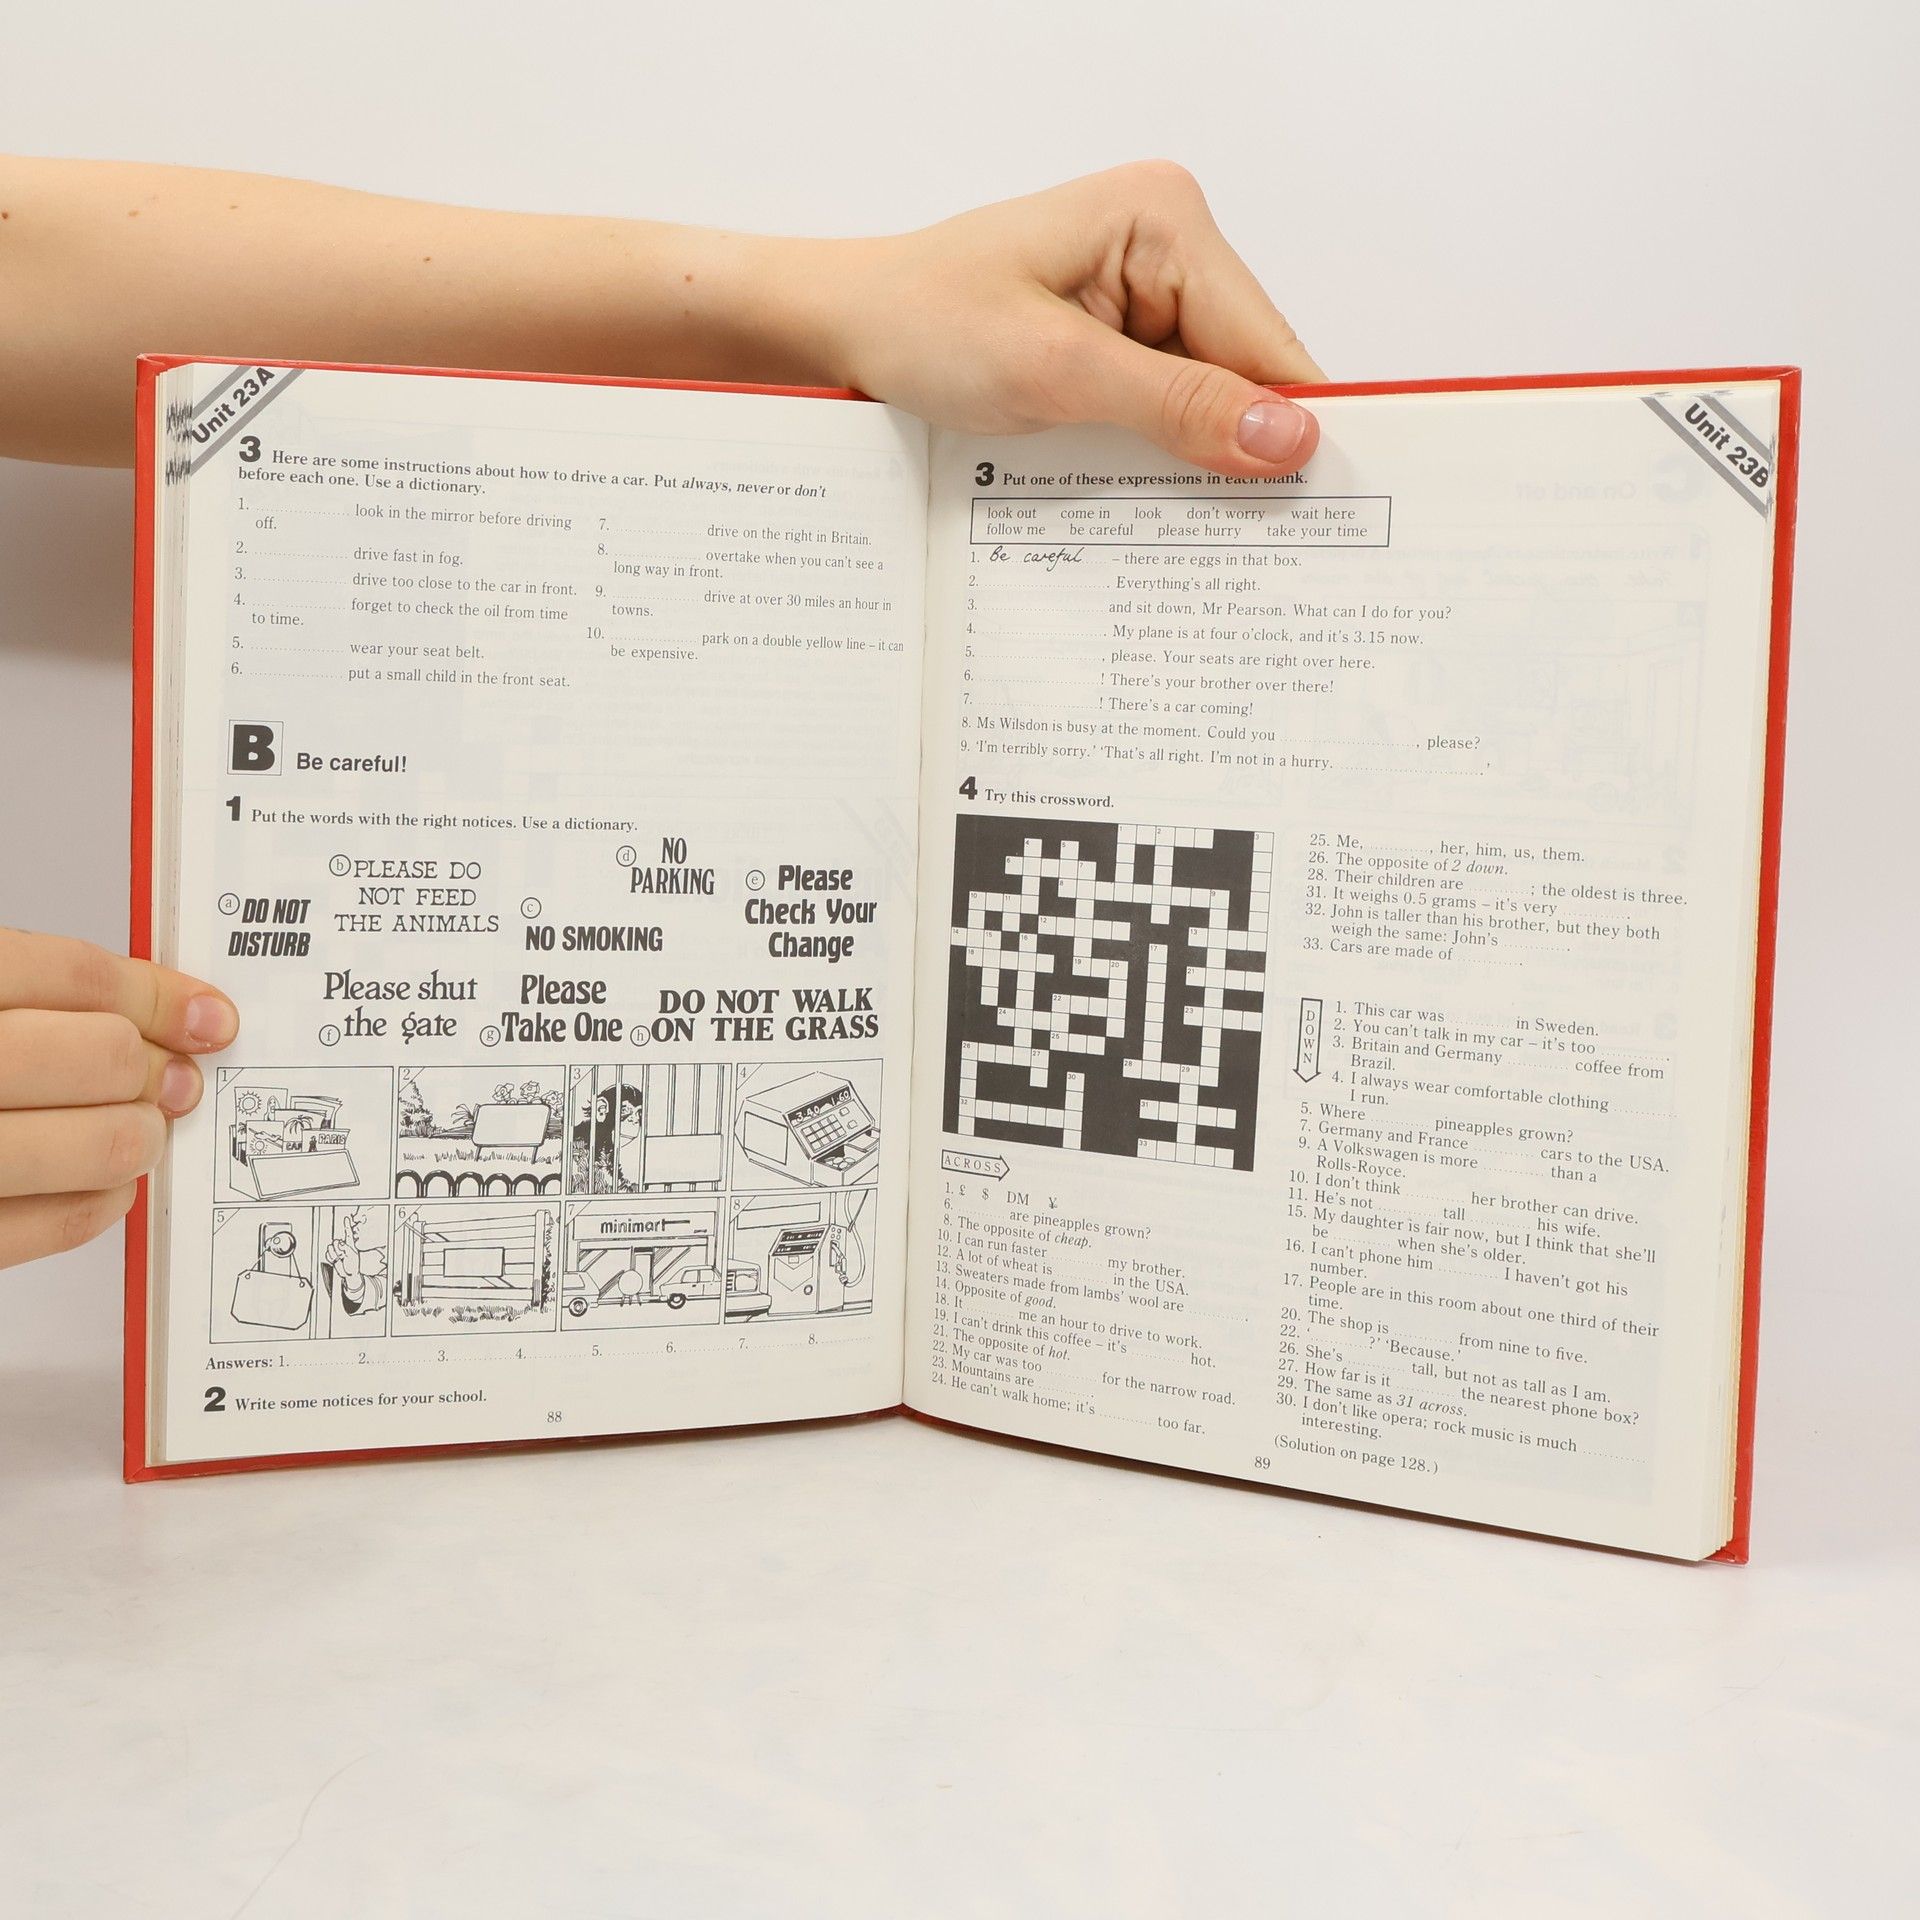 Unit 23A
3 Here are some instructions about how to drive a car. Put always, never or don't
before each one. Use a dictionary.
1. .................... look in the mirror before driving
off.
2. .................... drive fast in fog.
3. .................... drive too close to the car in front.
4. .................... forget to check the oil from time
to time.
5. .................... wear your seat belt.
6. .................... put a small child in the front seat.
7. .................... drive on the right in Britain.
8. .................... overtake when you can't see a
long way in front.
9. .................... drive at over 30 miles an hour in
towns.
10. .................... park on a double yellow line – it can
be expensive.
B Be careful!
1 Put the words with the right notices. Use a dictionary.
a DO NOT
DISTURB
b PLEASE DO
NOT FEED
THE ANIMALS
c
NO SMOKING
d NO
PARKING
e Please
Check Your
Change
Please shut
f the gate
Please
g Take One
DO NOT WALK
h ON THE GRASS
1
2
3
4
3.40 1.60
PARIS
5
6
7
minimart
8
Answers: 1. .......... 2. .......... 3. .......... 4. .......... 5. .......... 6. .......... 7. .......... 8. ..........
2 Write some notices for your school.
88
Unit 23B
3 Put one of these expressions in each blank.
look out come in look don't worry wait here
follow me be careful please hurry take your time
1. Be careful – there are eggs in that box.
2. .................... . Everything's all right.
3. .................... and sit down, Mr Pearson. What can I do for you?
4. .................... . My plane is at four o'clock, and it's 3.15 now.
5. .................... , please. Your seats are right over here.
6. .................... ! There's your brother over there!
7. .................... ! There's a car coming!
8. Ms Wilsdon is busy at the moment. Could you .................... , please?
9. 'I'm terribly sorry.' 'That's all right. I'm not in a hurry. .................... .'
4 Try this crossword.
ACROSS
1. £ $ DM ¥
6. .......... are pineapples grown?
8. The opposite of cheap.
10. I can run faster .......... my brother.
12. A lot of wheat is .......... in the USA.
13. Sweaters made from lambs' wool are .......... .
14. Opposite of good.
18. It .......... me an hour to drive to work.
19. I can't drink this coffee – it's .......... hot.
21. The opposite of hot.
22. My car was too .......... for the narrow road.
23. Mountains are .......... .
24. He can't walk home; it's .......... too far.
25. Me, .......... , her, him, us, them.
26. The opposite of 2 down.
28. Their children are .......... ; the oldest is three.
31. It weighs 0.5 grams – it's very .......... .
32. John is taller than his brother, but they both
weigh the same: John's .......... .
33. Cars are made of .......... .
DOWN
1. This car was .......... in Sweden.
2. You can't talk in my car – it's too .......... .
3. Britain and Germany .......... coffee from
Brazil.
4. I always wear comfortable clothing ..........
I run.
5. Where .......... pineapples grown?
7. Germany and France .......... cars to the USA.
9. A Volkswagen is more .......... than a
Rolls-Royce.
10. I don't think .......... her brother can drive.
11. He's not .......... tall .......... his wife.
15. My daughter is fair now, but I think that she'll
be .......... when she's older.
16. I can't phone him .......... I haven't got his
number.
17. People are in this room about one third of their
time.
20. The shop is .......... from nine to five.
22. '.......... ?' 'Because.'
26. She's .......... tall, but not as tall as I am.
27. How far is it .......... the nearest phone box?
29. The same as 31 across.
30. I don't like opera; rock music is much ..........
interesting.
(Solution on page 128.)
89